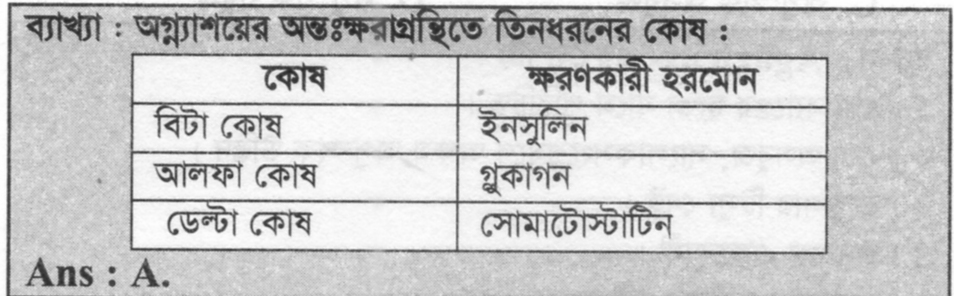 ব্যাখ্যা : অগ্ন্যাশয়ের অন্তঃক্ষরাগ্রন্থিতে তিনধরনের কোষ :
কোষ ক্ষরণকারী হরমোন
বিটা কোষ ইনসুলিন
আলফা কোষ গ্লুকাগন
ডেল্টা কোষ সোমাটোস্টাটিন
Ans : A.